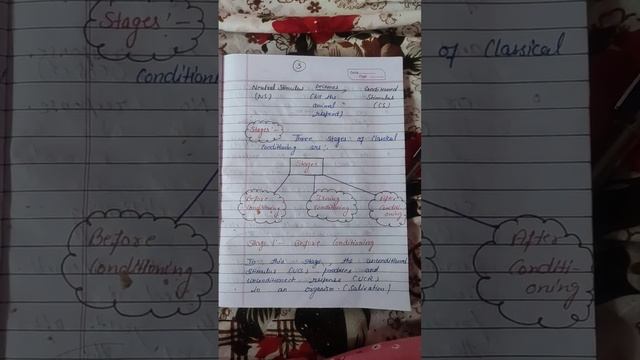 3
Neutral Stimulus becomes Conditioned
(NS) (bcz the Stimulus
animal (CS)
respond)
Stages:-
Three stages of Classical
Conditioning are:-
Stages
Before Conditioning
During Conditioning
After Conditi-oning
Stage 1:- Before Conditioning
In this stage, the unconditioned
Stimulus (UCS) produces and
unconditioned response (UCR)
in an organism. (Salivation)
Stages:-
Conditioni
Before
Conditioning
of Classical
After
Conditi-
oning